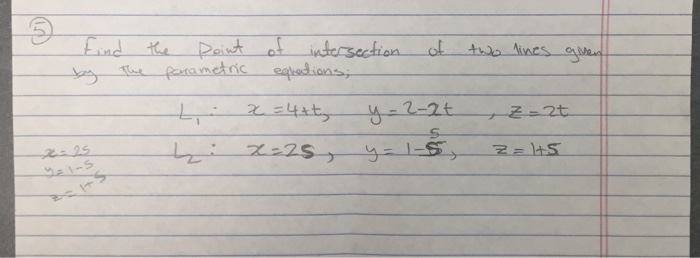 5
Find the Point of intersection of two lines given
by The parametric equations;
L₁: x = 4+t, y = 2-2t , z = 2t
L₂: x = 2s, y = 1-s, z = 1+s
x = 2s
y = 1-s
z = 1+s